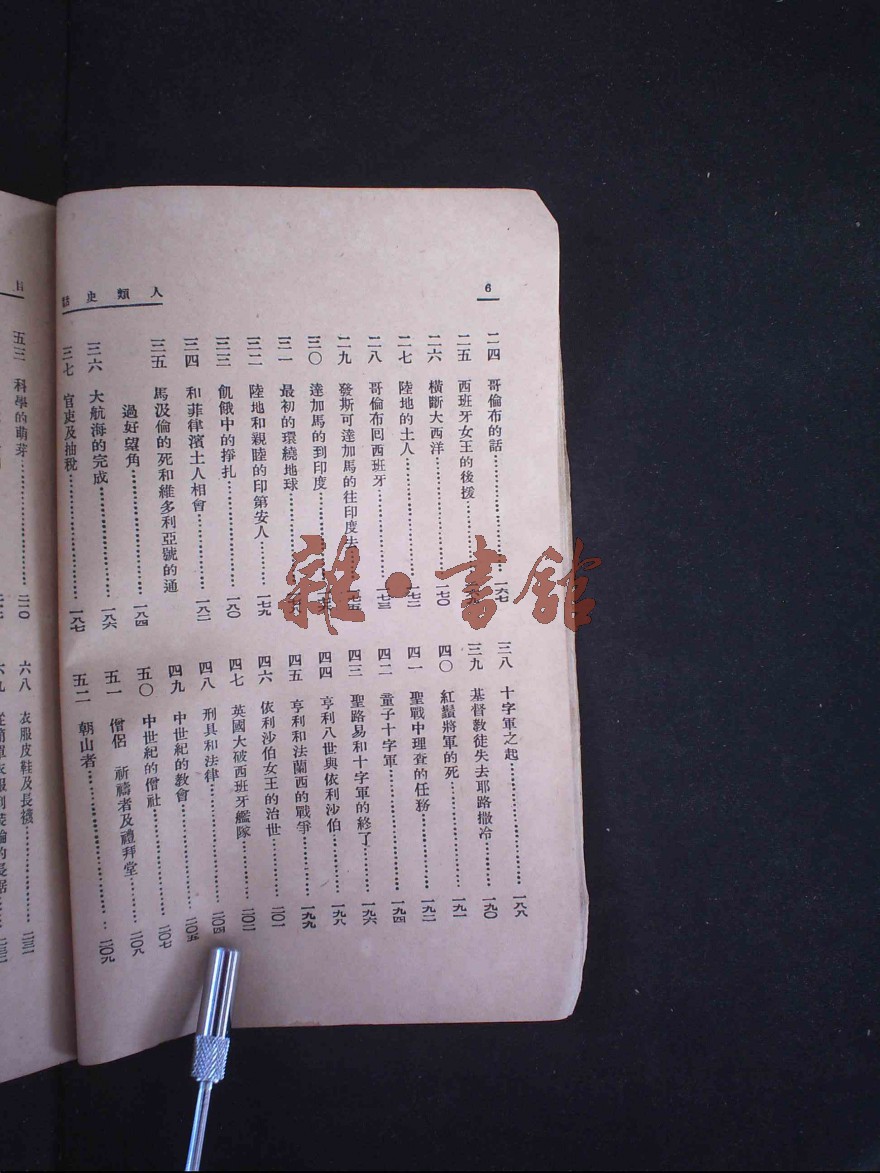 6
人類史話
二四 哥倫布的話……一六七
二五 西班牙女王的後援……
二六 橫斷大西洋……一七〇
二七 陸地的土人……一七二
二八 哥倫布回西班牙……一七三
二九 發斯可達加馬的往印度去……一七五
三〇 達加馬的到印度……
三一 最初的環繞地球……
三二 陸地和親陸的印第安人……一七九
三三 飢俄中的掙扎……一八〇
三四 和菲律濱土人相會……一八二
三五 馬汲倫的死和維多利亞號的通
過好望角……一八四
三六 大航海的完成……一八六
三七 官吏及抽稅……一八七
三八 十字軍之起……一八八
三九 基督教徒失去耶路撒冷……一九〇
四〇 紅鬚將軍的死……一九一
四一 聖戰中理查的任務……一九二
四二 童子十字軍……一九四
四三 聖路易和十字軍的終了……一九六
四四 亨利八世與依利沙伯……一九八
四五 亨利和法蘭西的戰爭……一九九
四六 依利沙伯女王的治世……二〇一
四七 英國大破西班牙艦隊……二〇二
四八 刑具和法律……二〇四
四九 中世紀的教會……二〇五
五〇 中世紀的僧社……二〇七
五一 僧侶 祈禱者及禮拜堂……二〇八
五二 朝山者……二〇九
目
五三 科學的萌芽……二一〇
六八 衣服皮鞋及長襪……二三一
雜·書館